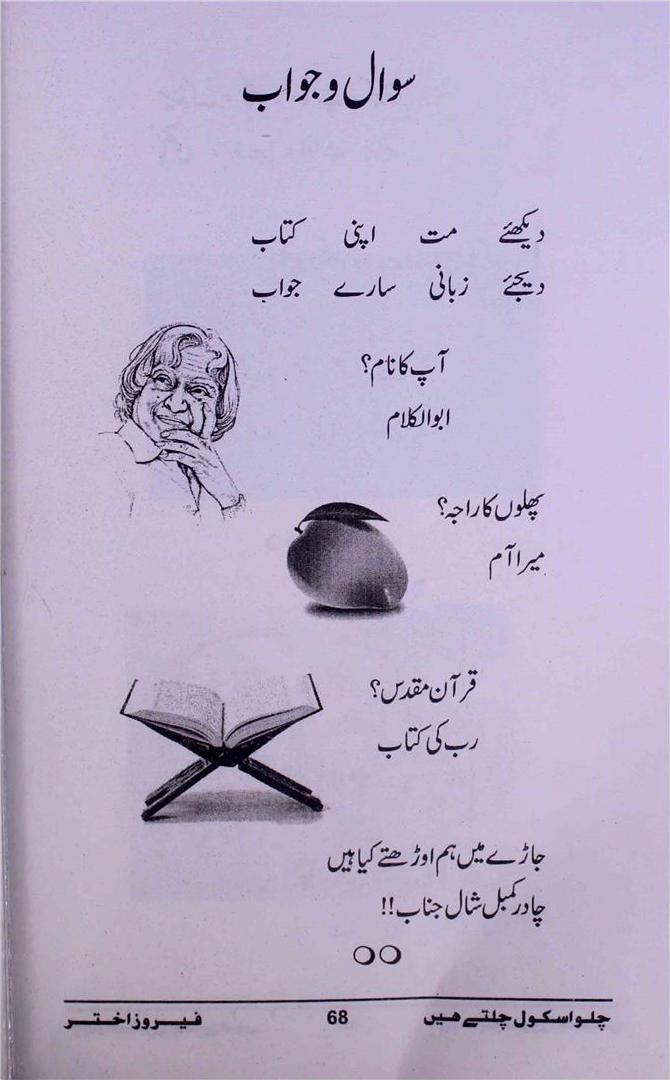 سوال و جواب
دیکھئے مت اپنی کتاب
دیجئے زبانی سارے جواب
آپ کا نام؟
ابوالکلام
پھلوں کا راجہ؟
میرا آم
قرآن مقدس؟
رب کی کتاب
جاڑے میں ہم اوڑھتے کیا ہیں
چادر کمبل شال جناب!!
چلو اسکول چلتے ھیں 68 فیروز اختر